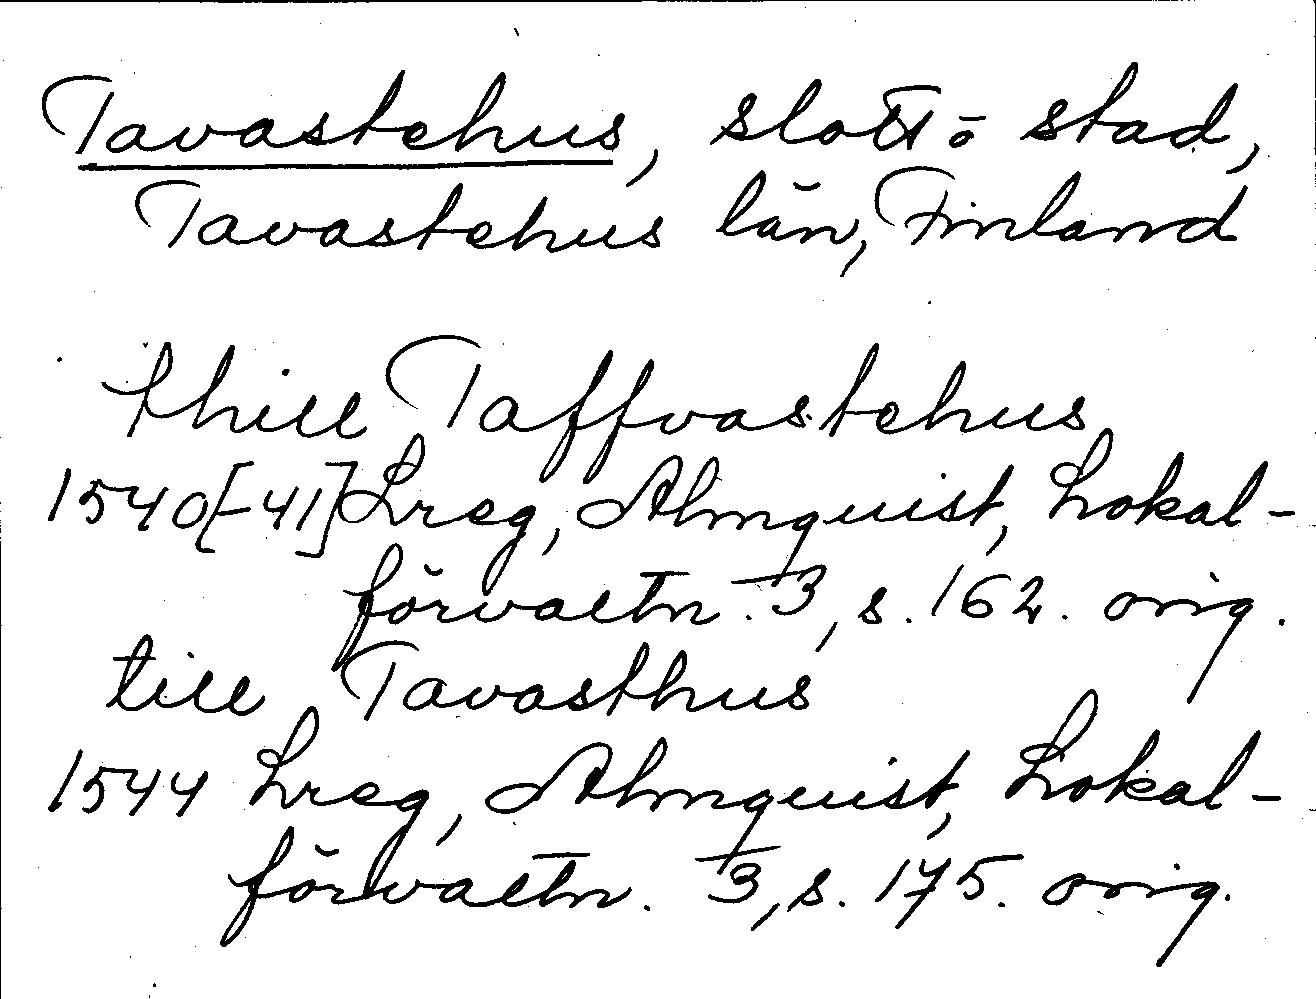 Tavastehus, slott o stad,
Tavastehus län, Finland
thill Taffvastehus
1540[-41] Lreg, Almquist, Lokal-
förvaltn. 3, s. 162. orig.
till Tavasthus
1544 Lreg, Almquist, Lokal-
förvaltn. 3, s. 175. orig.